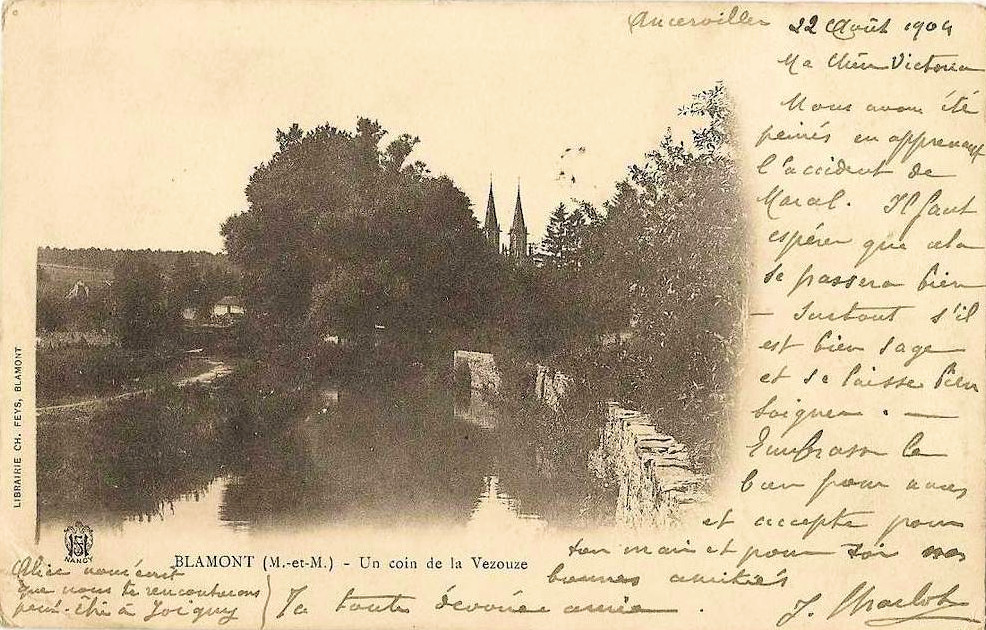 Ancerviller 22 Août 1904
Ma chère Victorina
Nous avons été
peinés en apprenant
l'accident de
Marcel. Il faut
espérer que cela
se passera bien
— surtout s'il
est bien sage
et se laisse bien
soigner. —
Embrasse le
bien pour nous
et accepte pour
ton mari et pour toi nos
bonnes amitiés
Ta toute dévouée amie.
J. Charlot
Alice nous écrit
que nous te rencontrerons
peut-être à Joigny
BLAMONT (M.-et-M.) - Un coin de la Vezouze
LIBRAIRIE CH. FEYS, BLAMONT
NANCY